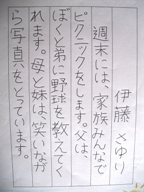 伊藤 さゆり
週末には、家族みんなで
ピクニックをします。父は、
ぼくと弟に野球を教えてく
れます。母と妹は、笑いなが
ら写真をとっています。